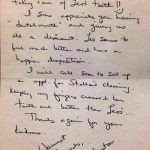 taking care of Jess' teeth!!
I sure appreciate you having
and giving us
a discount. She seems to
feel much better and have a
happier disposition.
I will call soon to set up
a appt for Stella's cleaning.
Keeping my fingers crossed her
teeth are better than Jess'...
Thanks again for your
kindness.